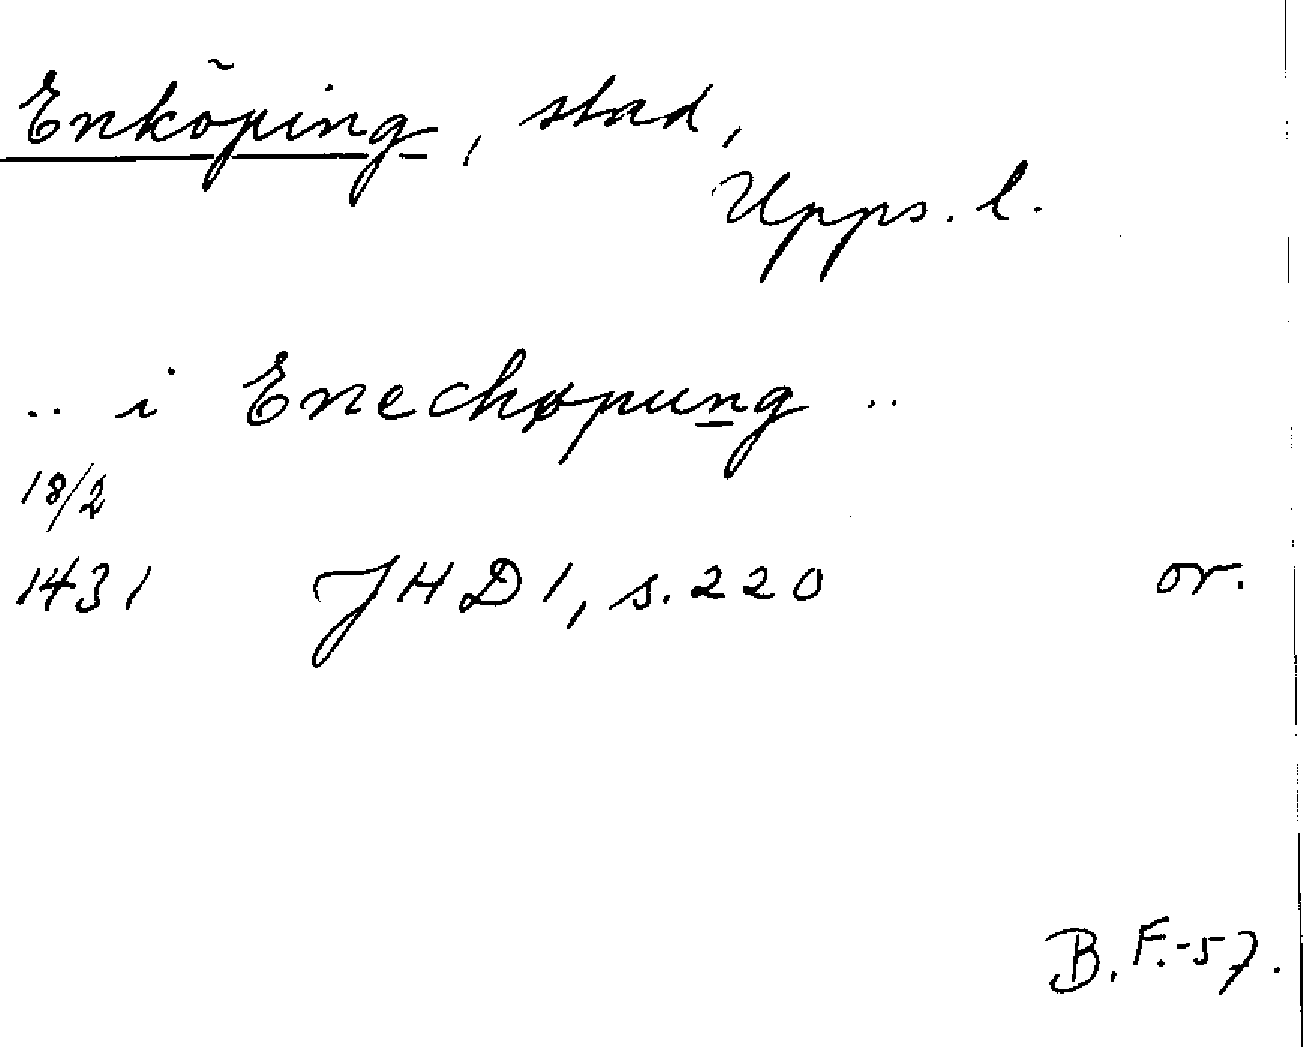 Enköping, stad,
Upps. l.
.. i Enechøpung ..
18/2
1431 JHD 1, s. 220 or.
B. F. -57.